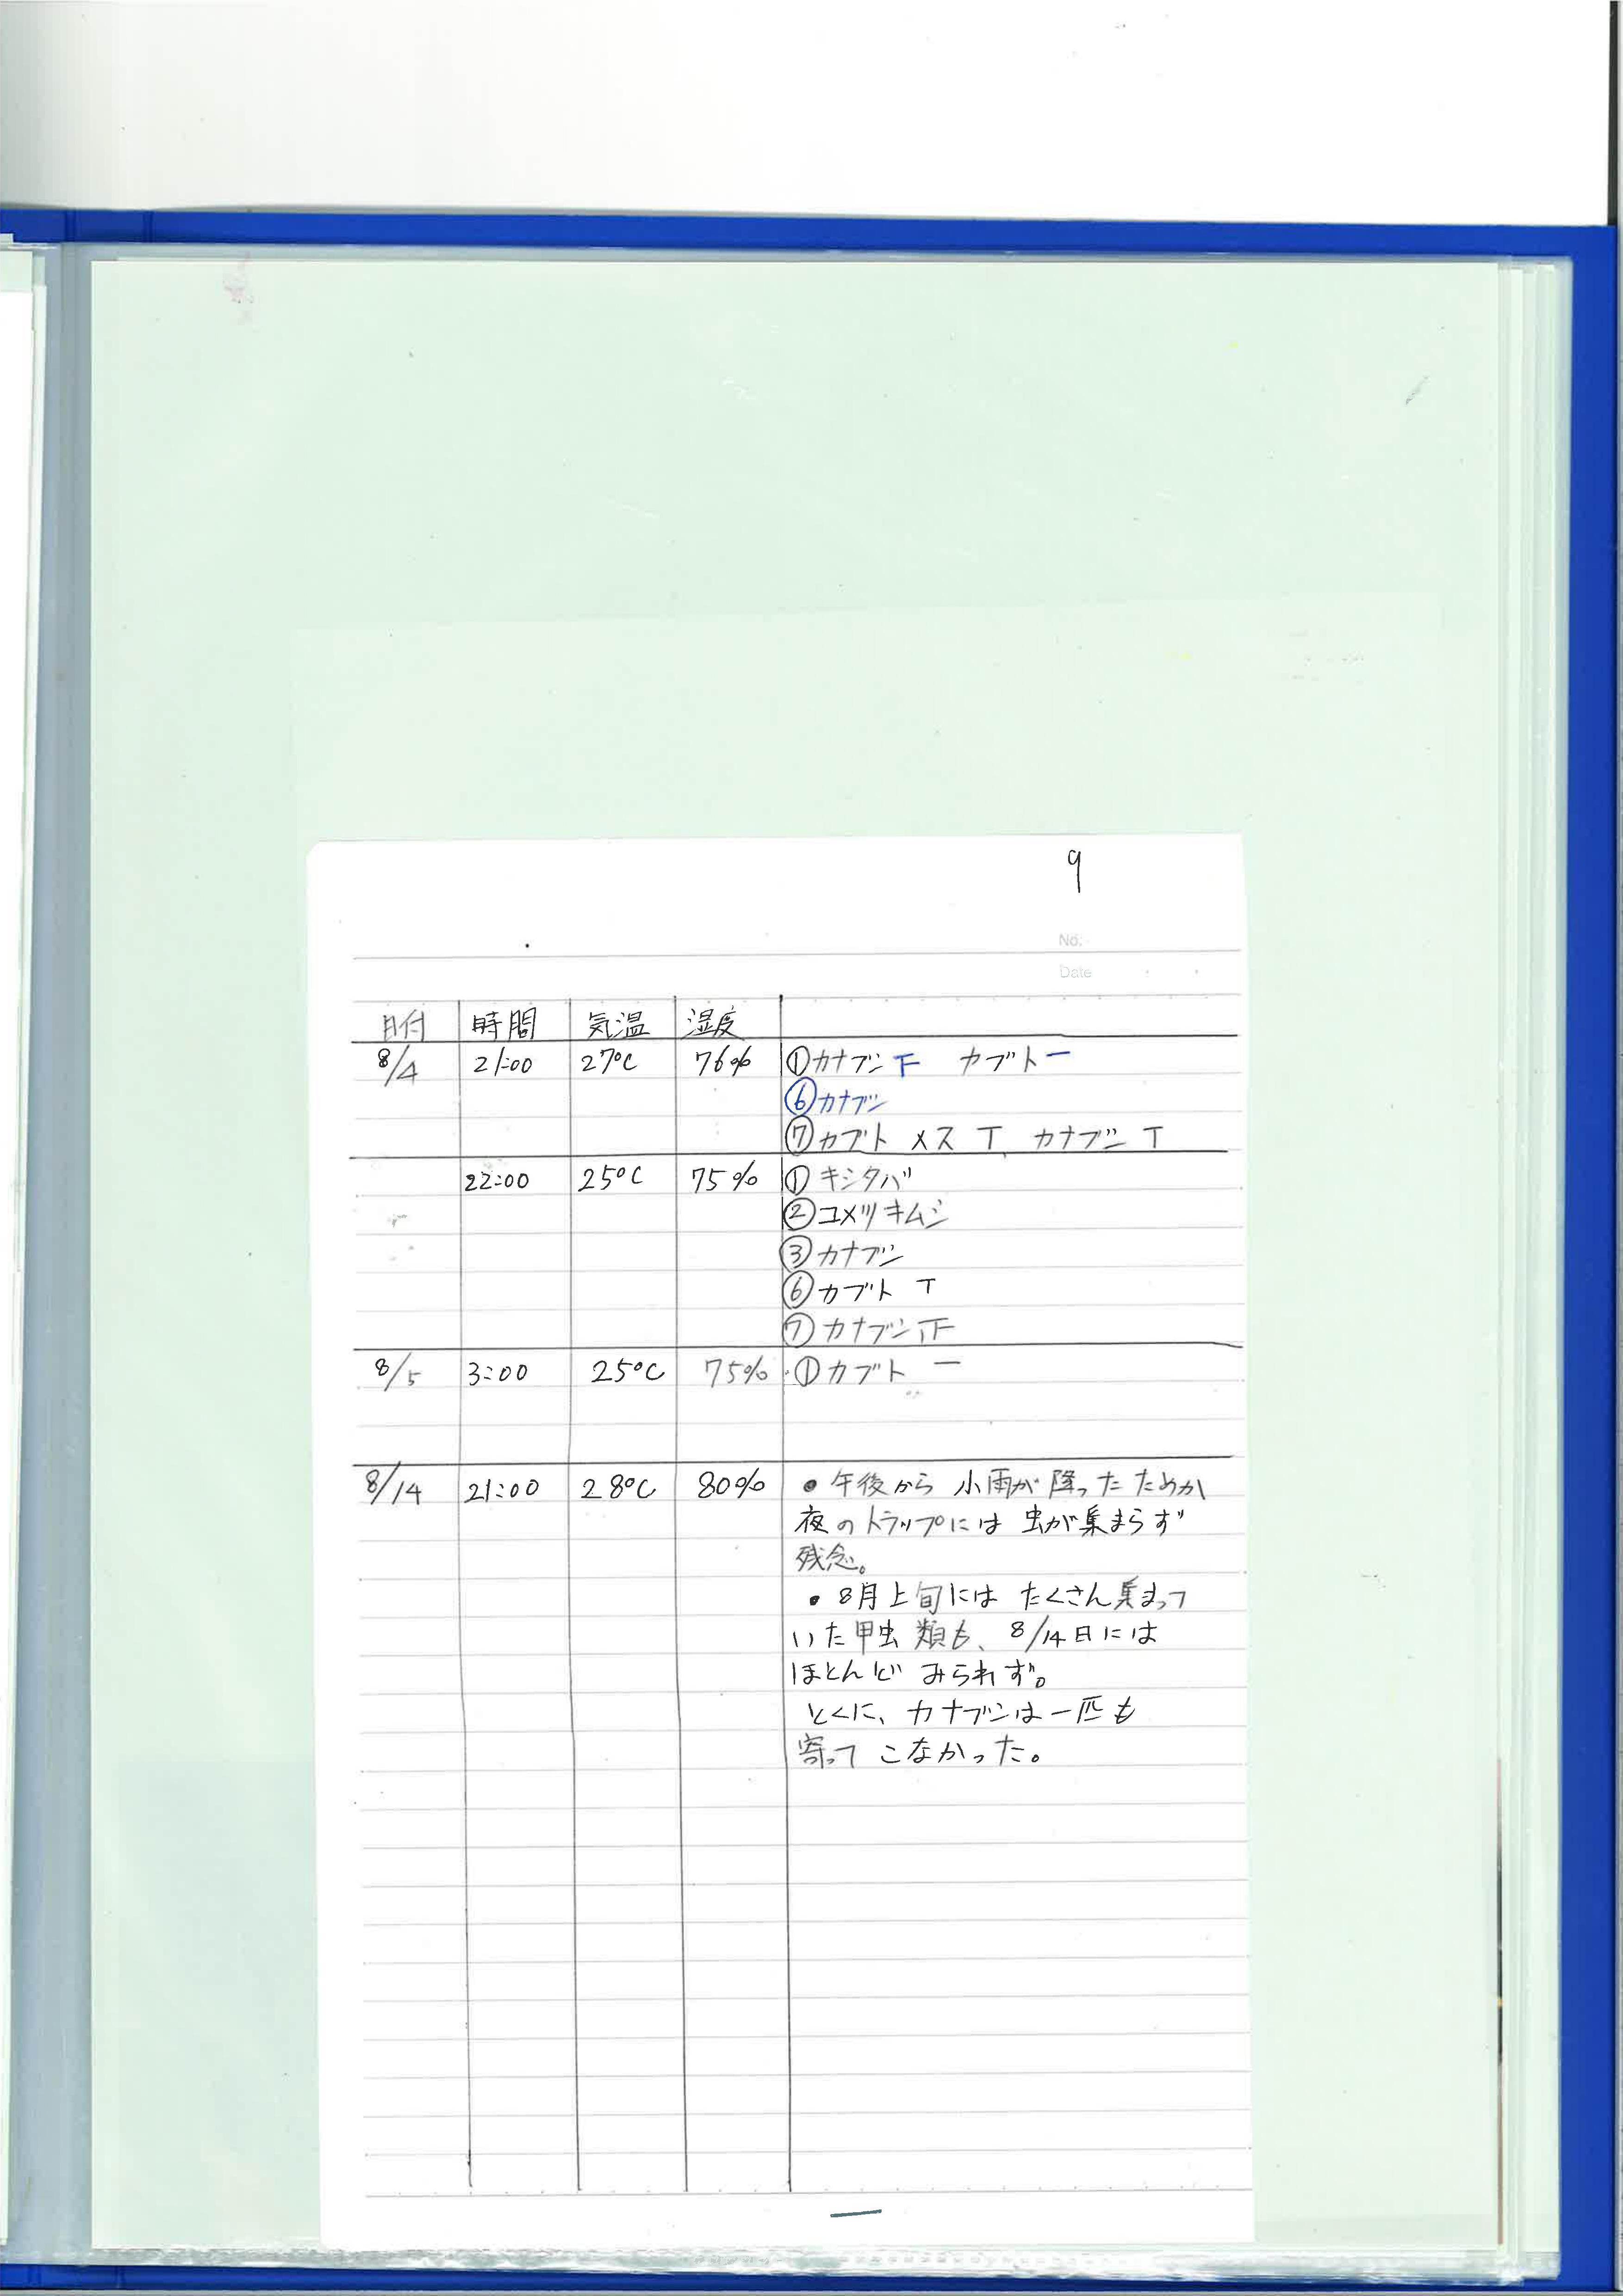 9
No.
Date
日付 時間 気温 湿度
8/4 21:00 27℃ 76% ①カナブン 下 カブト 一
⑥カナブン
⑦カブト メス T カナブン T
22:00 25℃ 75% ①キシタバ
②コメツキムシ
③カナブン
⑥カブト T
⑦カナブン 正
8/5 3:00 25℃ 75% ①カブト 一
8/14 21:00 28℃ 80% ・午後から小雨が降ったためか
夜のトラップには虫が集まらず
残念。
・8月上旬にはたくさん集まって
いた甲虫類も、8/14日には
ほとんどみられず。
とくに、カナブンは一匹も
寄ってこなかった。